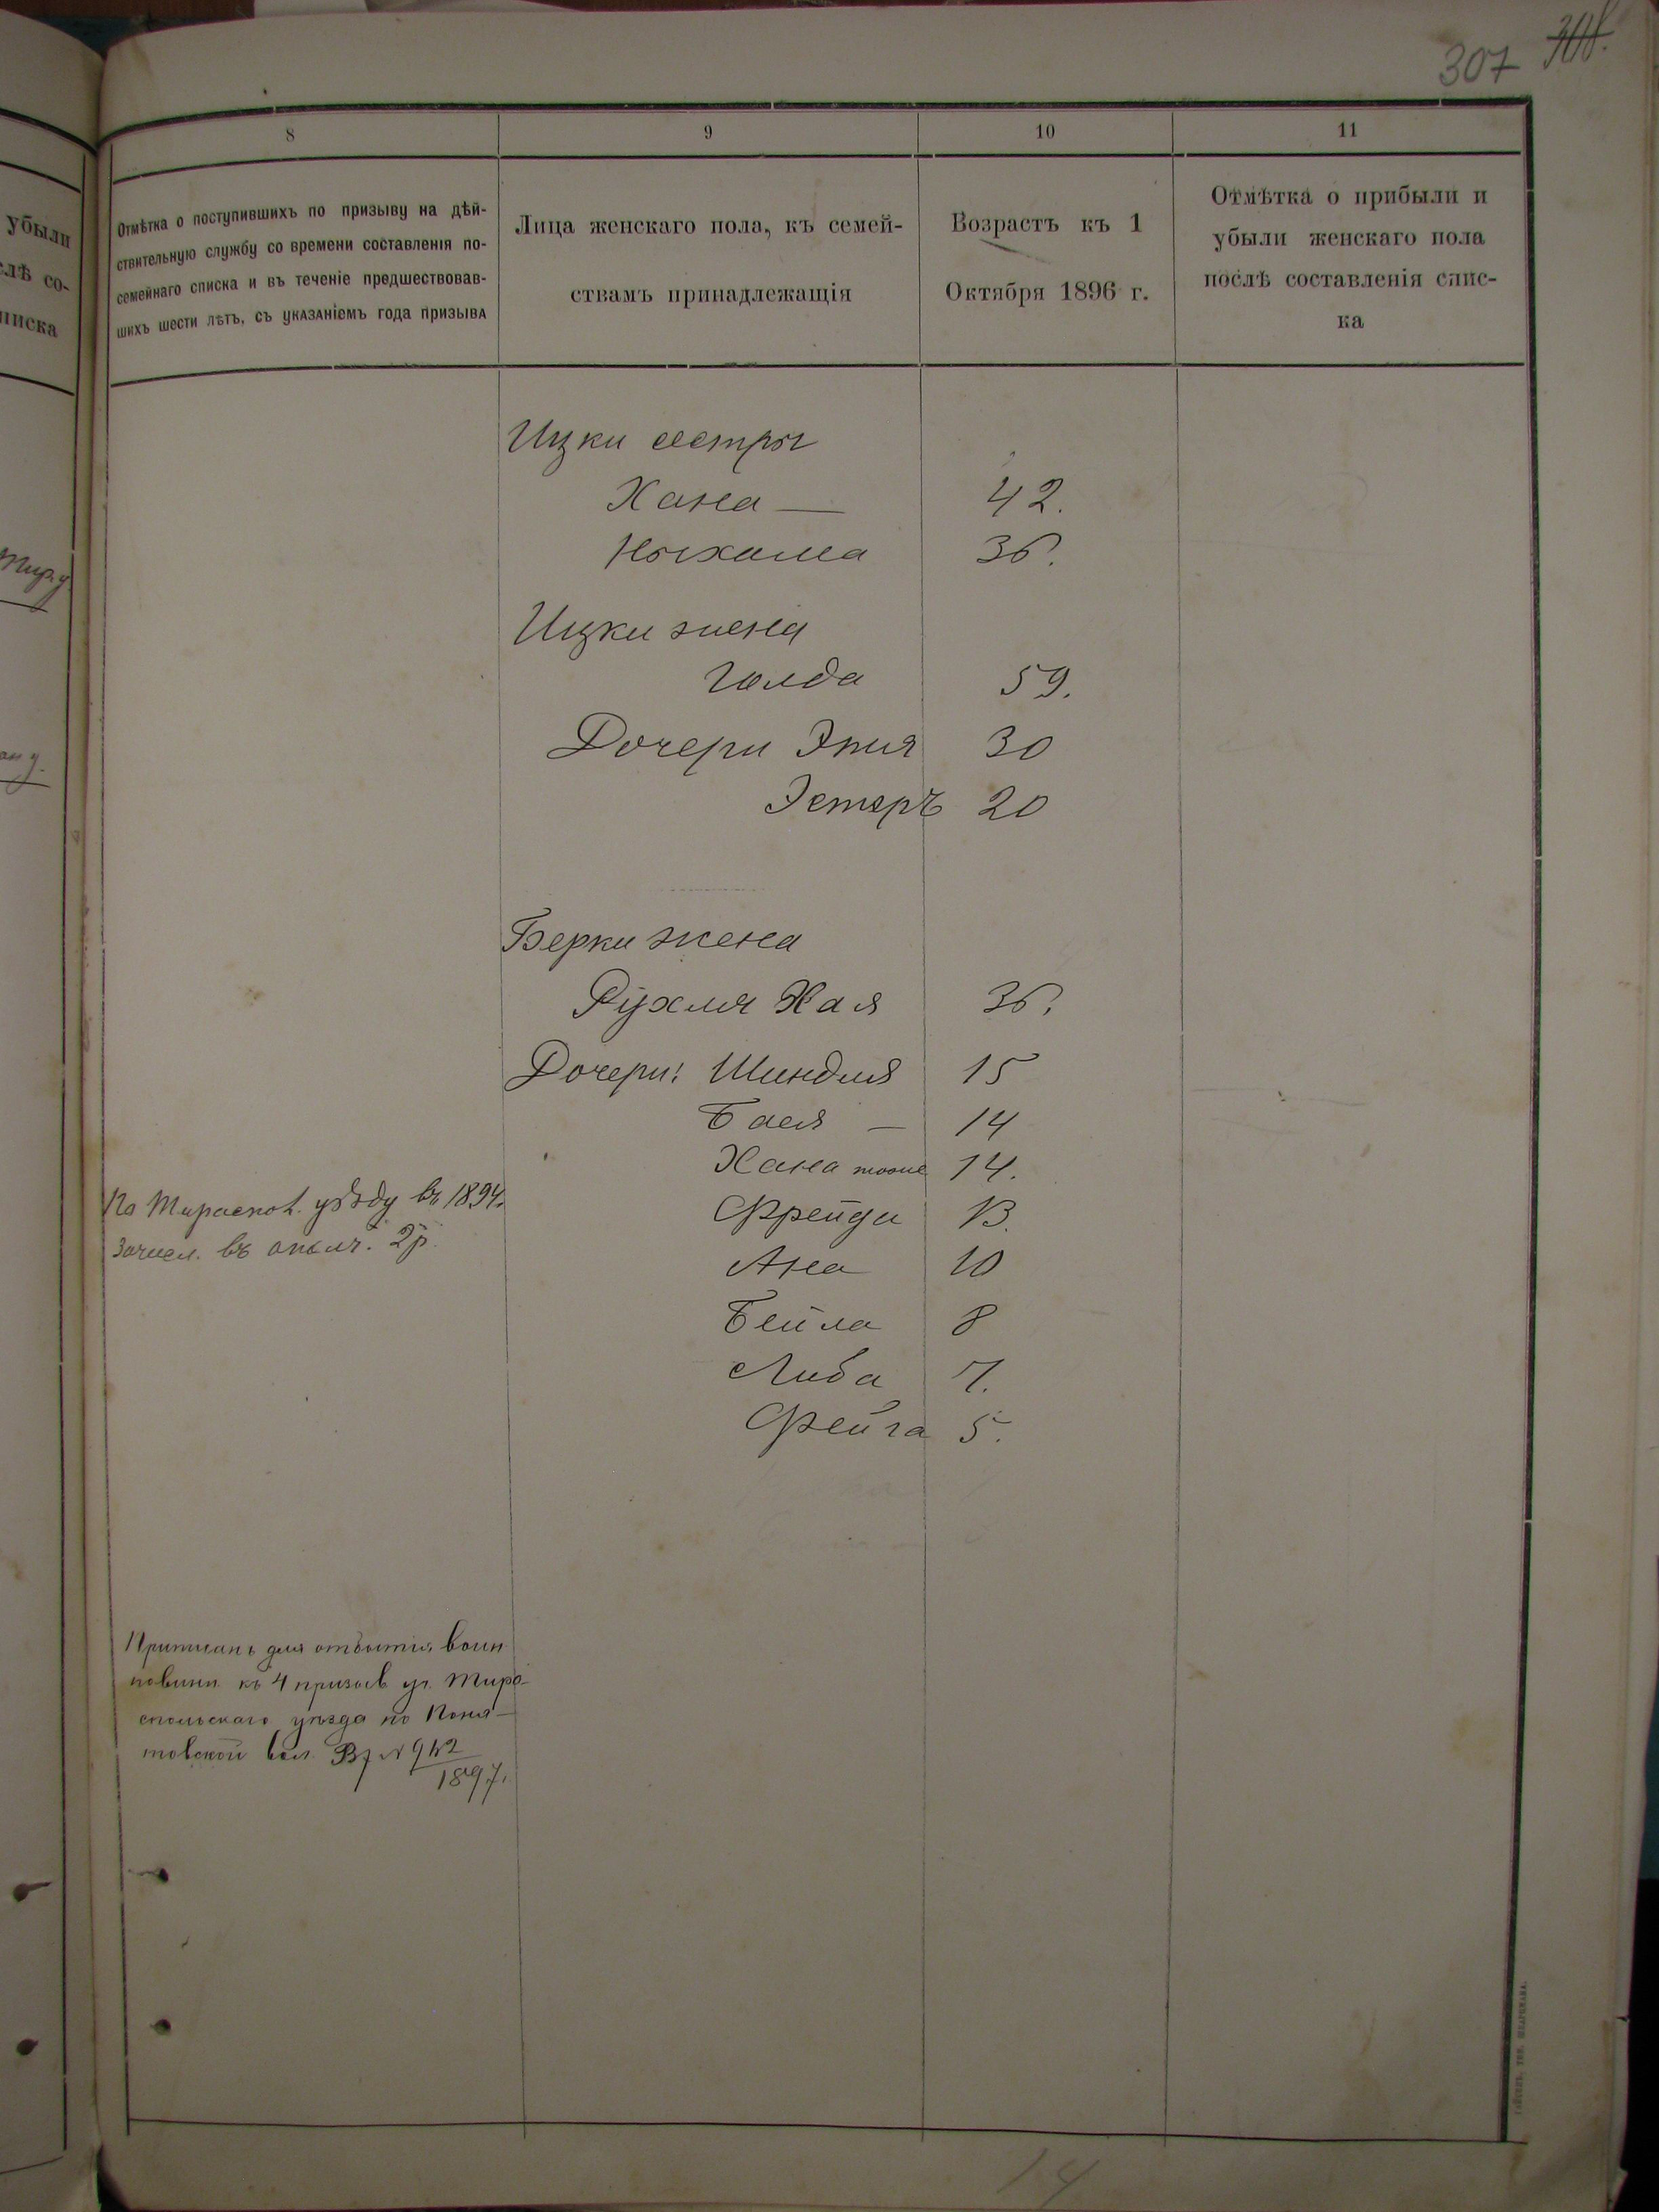 307 308.
8
9
10
11
Отмѣтка о поступившихъ по призыву на дѣй-
ствительную службу со времени составленія по-
семейнаго списка и въ теченіе предшествовав-
шихъ шести лѣтъ, съ указаніемъ года призыва
Лица женскаго пола, къ семей-
ствамъ принадлежащія
Возрастъ къ 1
Октября 1896 г.
Отмѣтка о прибыли и
убыли женскаго пола
послѣ составленія спис-
ка
убыли
слѣ со-
писка
Ицки сестры
Хана — 42.
Ныхама 36.
Ицки жена
Голда 59.
Дочери Эния 30
Эстеръ 20
Берки жена
Рухля Хая 36.
Дочери: Шиндля 15
Бася — 14
Хана тоже 14.
Фрейда 13.
Ана 10
Бейла 8
Либа 7.
Фейга 5.
По Тираспол. уѣзду въ 1894.
Зачисл. въ ополч. 2 р.
Приписанъ для отбытія воин
повинн. къ 4 призыв уч. Тира-
спольскаго уѣзда по Поня-
товской вол. Вх № 942
1897.
14